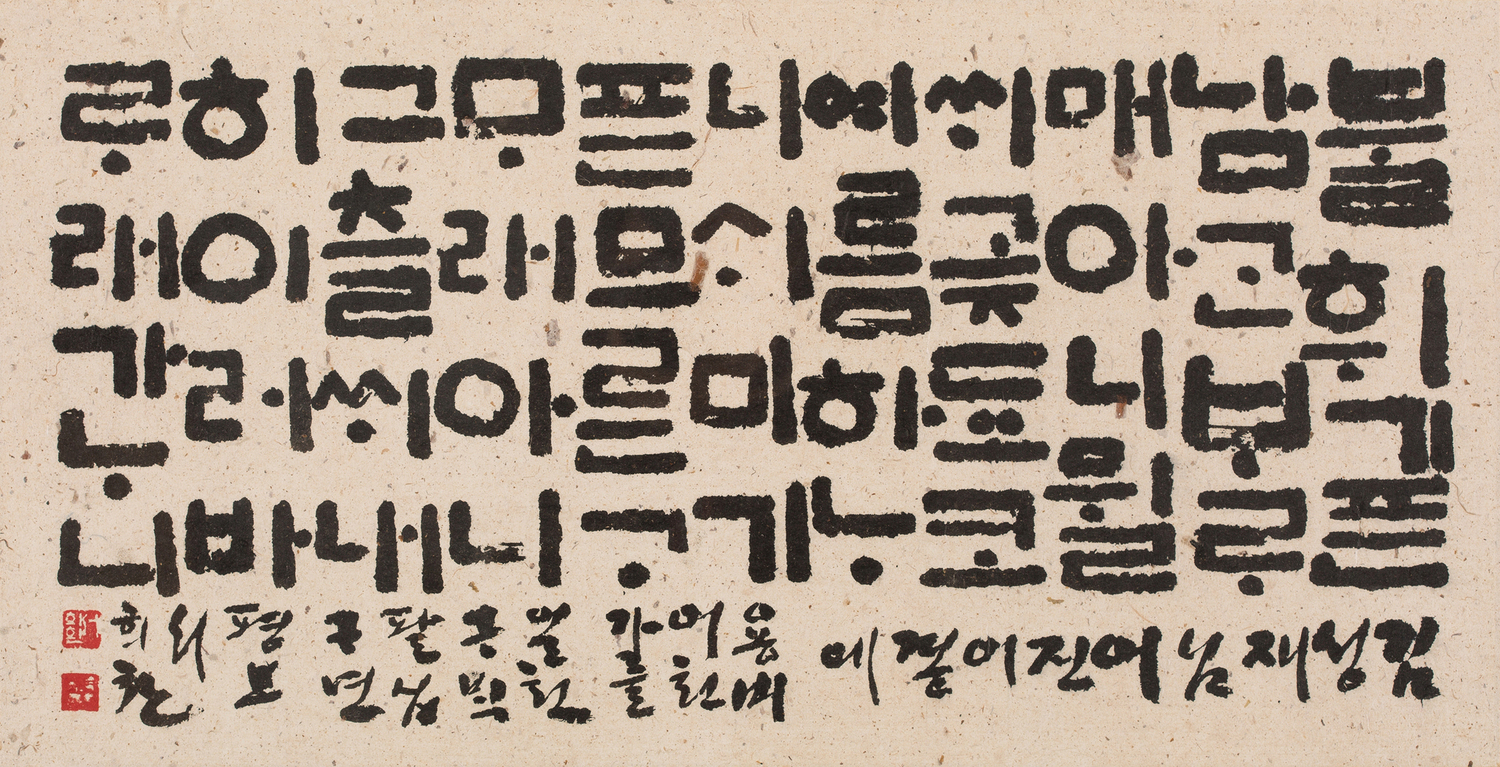 불휘기픈
남ᄀᆞᆫᄇᆞᄅᆞ
매아니뮐
ᄊᆡ곶됴코
여름하ᄂᆞ
니ᄉᆡ미기
픈므른ᄀᆞ
ᄆᆞ래아니
그츨ᄊᆡ내
히이러바
ᄅᆞ래가ᄂᆞ니
김성재님 어진이 곁에
용비
어천
가를
일천
구백
팔십
구년
평보
서
희환